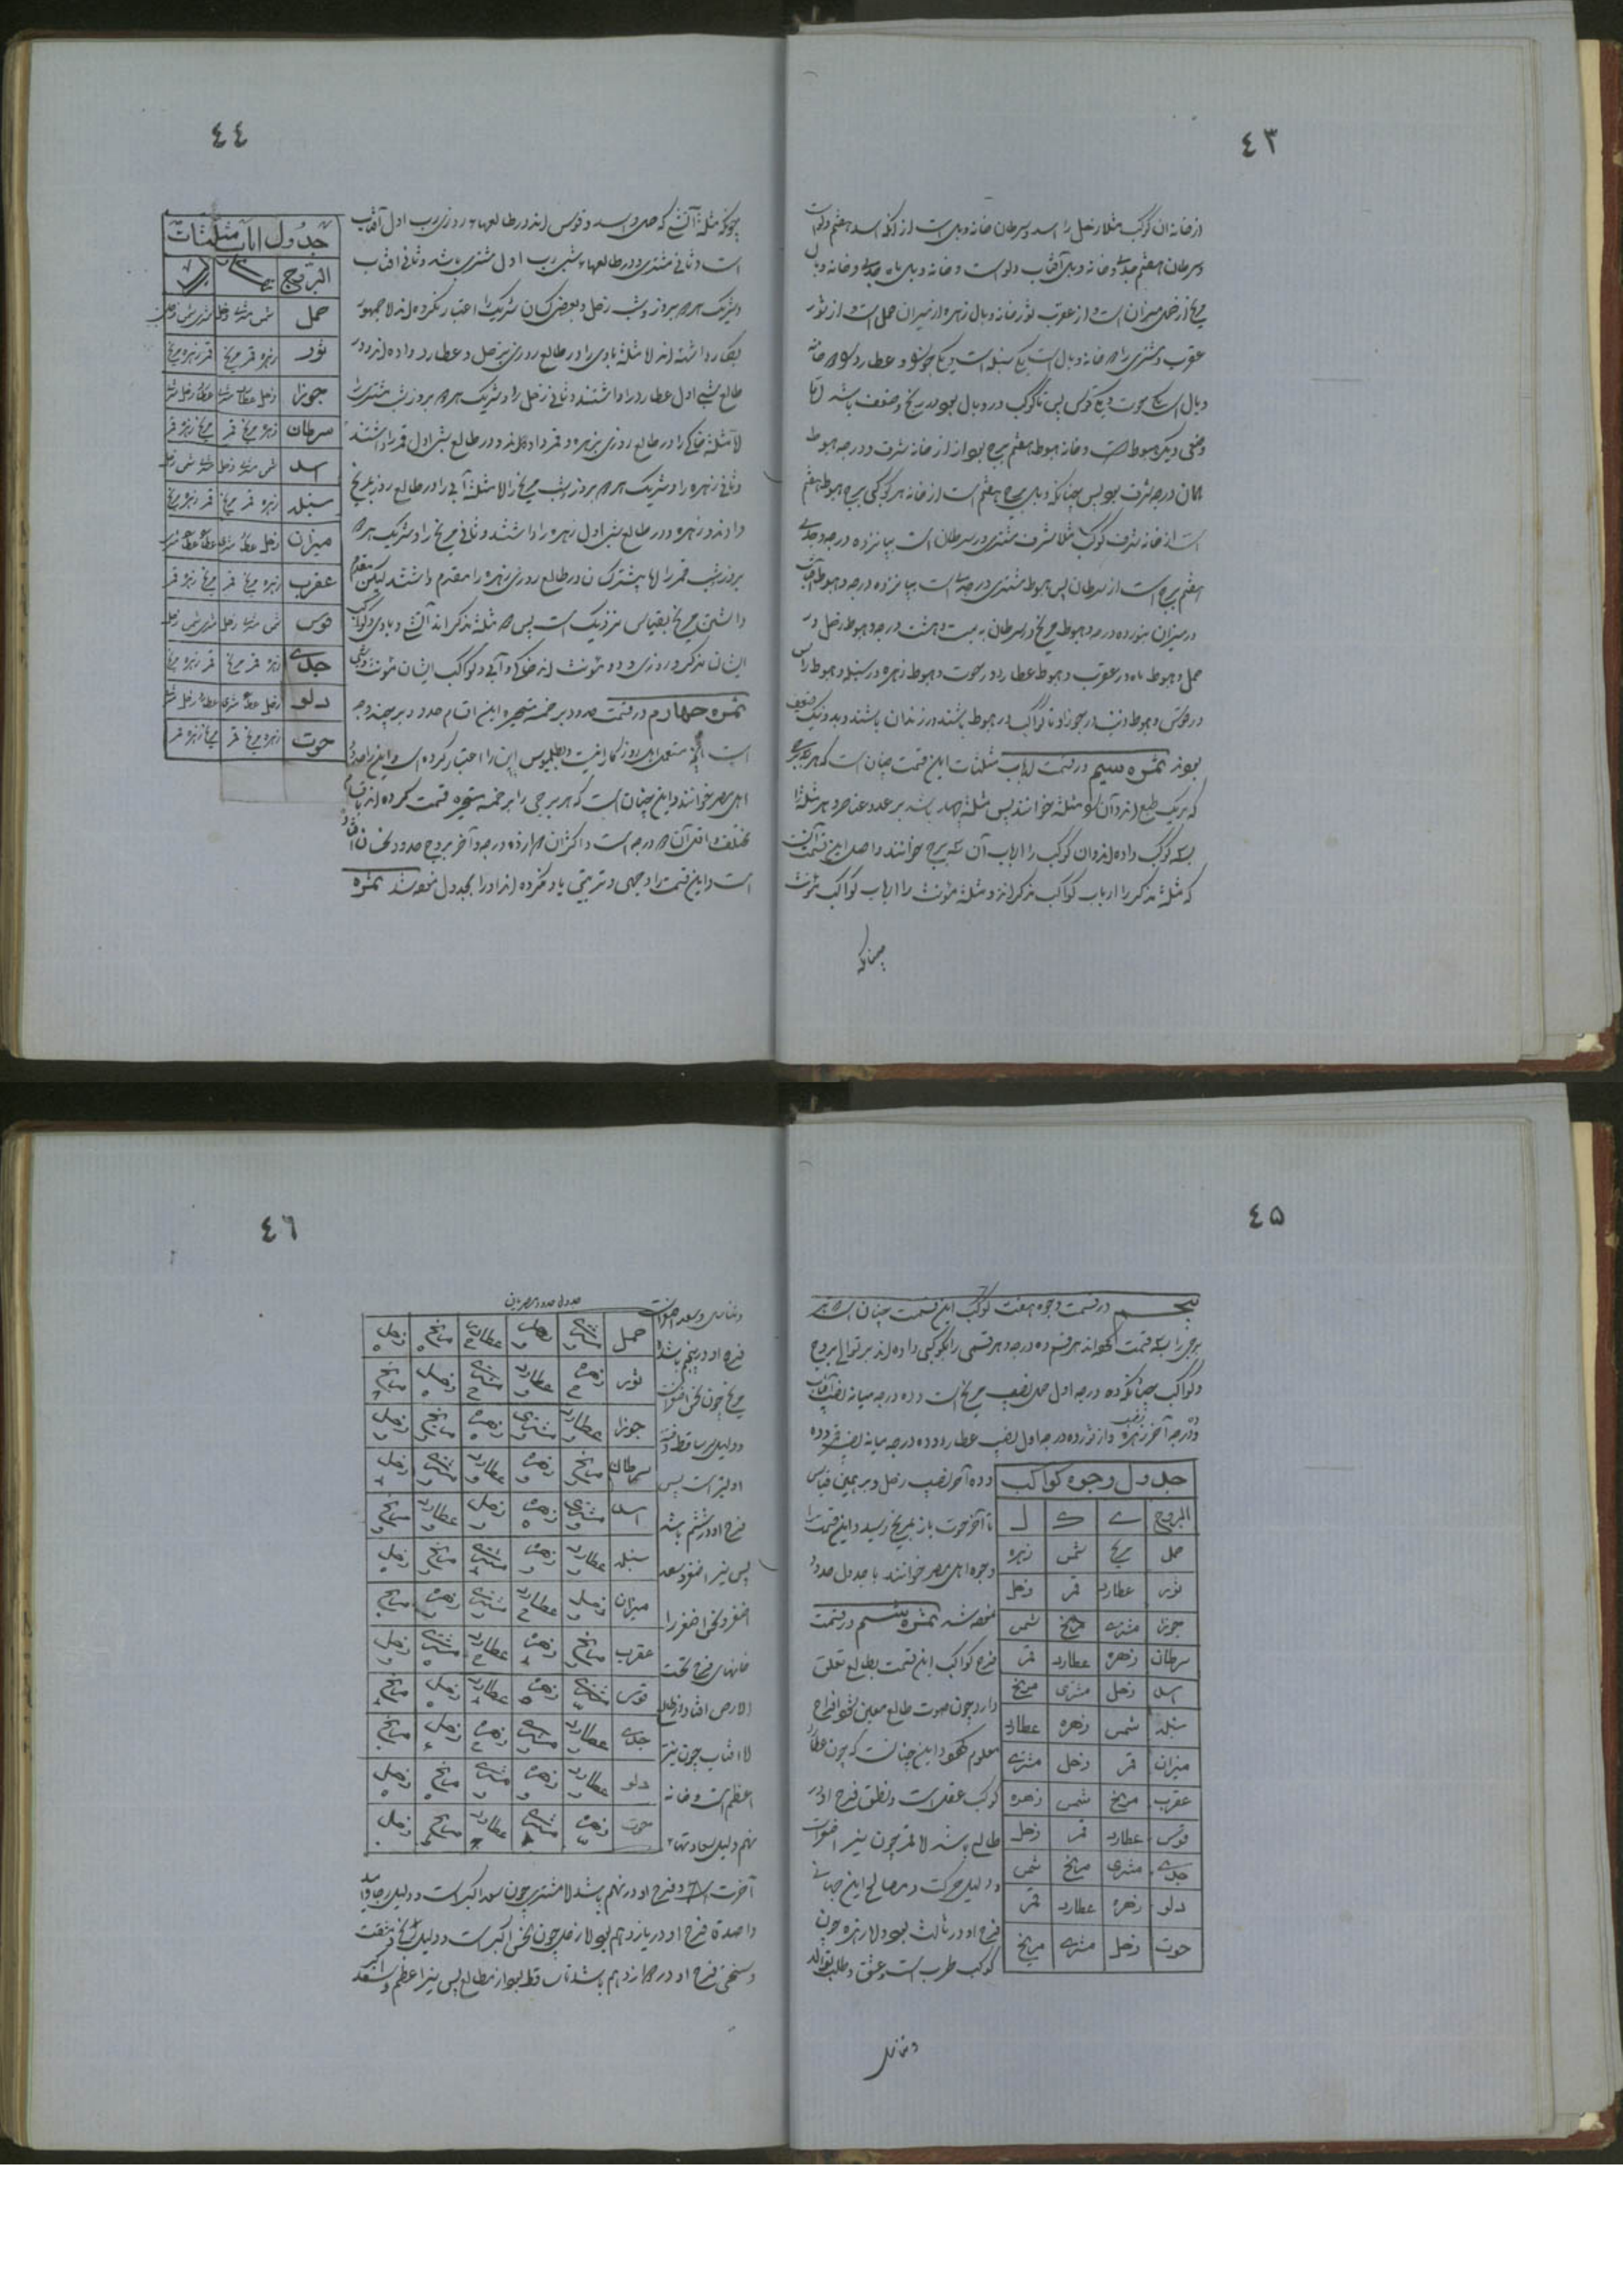 ٤٣
از خانه آن کوکب مثلا زحل را اسد و سرطان خانه وبال است از آنکه اسد هفتم دلو است
و سرطان هفتم جدی و خانه وبال آفتاب دلو است و خانه وبال ماه جدی و خانه وبال
مریخ از حمل میزان است و از عقرب ثور خانه وبال زهره از میزان حمل است و از ثور
عقرب و مشتری را خانه وبال است یکی سنبله است و یکی جوزا و عطارد را خانه
وبال است یکی حوت و یکی قوس پس تا کوکب در وبال بود در رنج و ضعف باشد اما
وضعی دیگر هبوط است و خانه هبوط هفتم برج بود از خانه شرف و درجه هبوط
همان درجه شرف بود پس چنانکه وبال برج هفتم است از خانه هر کوکبی برج هبوط هفتم
است از خانه شرف کوکب مثلا شرف مشتری در سرطان است بپانزده درجه و جدی
هفتم برج است از سرطان پس هبوط مشتری در جدی است بپانزده درجه و هبوط آفتاب
در میزان بنوزده درجه و هبوط مریخ در سرطان به بیست و هشت درجه و هبوط زحل در
حمل و هبوط ماه در عقرب و هبوط عطارد در حوت و هبوط زهره در سنبله و هبوط راس
در قوس و هبوط ذنب در جوزا و تا کواکب در هبوط باشند در زندان باشند و بد و نیک ضعیف
بود ثمره سیم در قسمت ارباب مثلثات این قسمت چنان است که هر سه برج
که بر یک طبع اند و آن را مثلثه خوانند پس مثلثه چهار باشد بر عدد عناصر و هر مثلثه را
بسه کوکب داده اند و آن کوکب را ارباب آن سه برج خوانند و اصل این قسمت آنست
که مثلثه مذکر را ارباب کواکب مذکر اند و مثلثه مؤنث را ارباب کواکب مؤنث
چنانکه
٤٤
چونکه مثلثه آتشی که حمل و اسد و قوس اند در طالعهاء روزی رب اول آفتاب
است و ثانی مشتری و در طالعهاء شبی رب اول مشتری باشد و ثانی آفتاب
و شریک هر دو بروز و شب زحل و بعضی کسان شریک را اعتبار نکرده اند اما جمهور
بکار داشته اند اما مثلثه بادی را در طالع روزی بزحل و عطارد داده اند و در
طالع شبی اول عطارد را داشتند و ثانی زحل را و شریک هر دو بروز و شب مشتریست
اما مثلثه خاکی را در طالع روزی بزهره و قمر داده اند و در طالع شبی اول قمر را داشتند
و ثانی زهره را و شریک هر دو بروز و شب مریخ را اما مثلثه آبی را در طالع روز بمریخ
دادند و زهره و در طالع شبی اول زهره را داشتند و ثانی مریخ را و شریک هر دو
بروز و شب قمر را اما بیشتر کسان در طالع روزی زهره را مقدم داشتند لیکن مقدم
داشتن مریخ بقیاس نزدیک است پس دو مثلثه مذکر اند آتشی و بادی و کواکب
ایشان مذکر و روزی و دو مؤنث اند خاکی و آبی و کواکب ایشان مؤنث و شبی
ثمره چهارم در قسمت حدود بر خمسه متحیره این اقسام حدود بر چند وجه
است آنچه مستعمل اهل روزگار ماست و بطلمیوس این را اختیار کرده است و این را حدود
اهل مصر خوانند و این چنان است که هر برجی را بر خمسه متحیره قسمت کرده اند باقسام
مختلف و اقل آن دو درجه است و اکثر آن دوازده درجه و آخر بروج حدود نحسان افتاده
است و این قسمت را وجهی و ترتیبی یاد نکرده اند او را بجدول نموده شد ثمره
جدول ارباب مثلثات
البروج
حمل شمس مشتری زحل مشتری شمس زحل
ثور زهره قمر مریخ قمر زهره مریخ
جوزا زحل عطارد مشتری عطارد زحل مشتری
سرطان زهره مریخ قمر مریخ زهره قمر
اسد شمس مشتری زحل مشتری شمس زحل
سنبله زهره قمر مریخ قمر زهره مریخ
میزان زحل عطارد مشتری عطارد
عقرب زهره مریخ قمر مریخ زهره قمر
قوس شمس مشتری زحل مشتری شمس زحل
جدی زهره قمر مریخ قمر زهره مریخ
دلو زحل عطارد مشتری عطارد زحل مشتری
حوت زهره مریخ قمر مریخ زهره قمر
٤٥
پنجم در قسمت وجوه هفت کوکب این قسمت چنان است که هر
برجی را بسه قسمت کرده اند هر قسم ده درجه و هر قسمی را بکوکبی داده اند بر توالی بروج
و کواکب چنانکه ده درجه اول حمل نصیب مریخ است و ده درجه میانه نصیب آفتاب
و ده درجه آخر نصیب زهره و از ثور ده درجه اول نصیب عطارد و ده درجه میانه نصیب قمر و ده
و ده آخر نصیب زحل و بر همین قیاس
تا آخر حوت باز بمریخ رسید و این قسمت را
وجوه اهل مصر خوانند با جدول حدود
نموده شد ثمره ششم در قسمت
فرح کواکب این قسمت بطالع تعلق
دارد چون صورت طالع معین شود افراح
معلوم گردد و این چنانست که چون عطارد
کوکب عقل است و نطق فرح او در
طالع باشد اما قمر چون نیر اصغر است
و دلیل حرکت و مصالح این جهانی
فرح او در ثالث بود و اما زهره چون
کوکب طرب است و عشق و طلب توالد
جدول وجوه کواکب
البروج ی ک ل
حمل مریخ شمس زهره
ثور عطارد قمر زحل
جوزا مشتری مریخ شمس
سرطان زهره عطارد قمر
اسد زحل مشتری مریخ
سنبله شمس زهره عطارد
میزان قمر زحل مشتری
عقرب مریخ شمس زهره
قوس عطارد قمر زحل
جدی مشتری مریخ شمس
دلو زهره عطارد قمر
حوت زحل مشتری مریخ
و تناسل
٤٦
و تناسل و سعد اصغر است
فرح او در پنجم باشد
مریخ چون نحس اصغر است
و دلیل
اولیتر است پس
فرح او در ششم باشد
پس نیر اصغر و سعد
اصغر و نحس اصغر را
خانهای فرح تحت
الارض افتاد از طالع
اما آفتاب چون نیر
اعظم است و خانه
نهم دلیل سعادتهاء
آخرت است فرح او در نهم باشد اما مشتری چون سعد اکبر است و دلیل رجا و امید
و اصدقا فرح او در یازدهم بود اما زحل چون نحس اکبر است و دلیل رنج و مشقت
و سختی فرح او در دوازدهم باشد تا ساقط بود از طالع پس نیر اعظم و سعد اکبر
جدول حدود مصریان
حمل مشتری زهره عطارد مریخ زحل
ثور زهره عطارد مشتری زحل مریخ
جوزا عطارد مشتری زهره مریخ زحل
سرطان مریخ زهره عطارد مشتری زحل
اسد مشتری زهره زحل عطارد مریخ
سنبله عطارد زهره مشتری مریخ زحل
میزان زحل عطارد مشتری زهره مریخ
عقرب مریخ زهره عطارد مشتری زحل
قوس مشتری زهره عطارد زحل مریخ
جدی عطارد مشتری زهره زحل مریخ
دلو عطارد زهره مشتری مریخ زحل
حوت زهره مشتری عطارد مریخ زحل